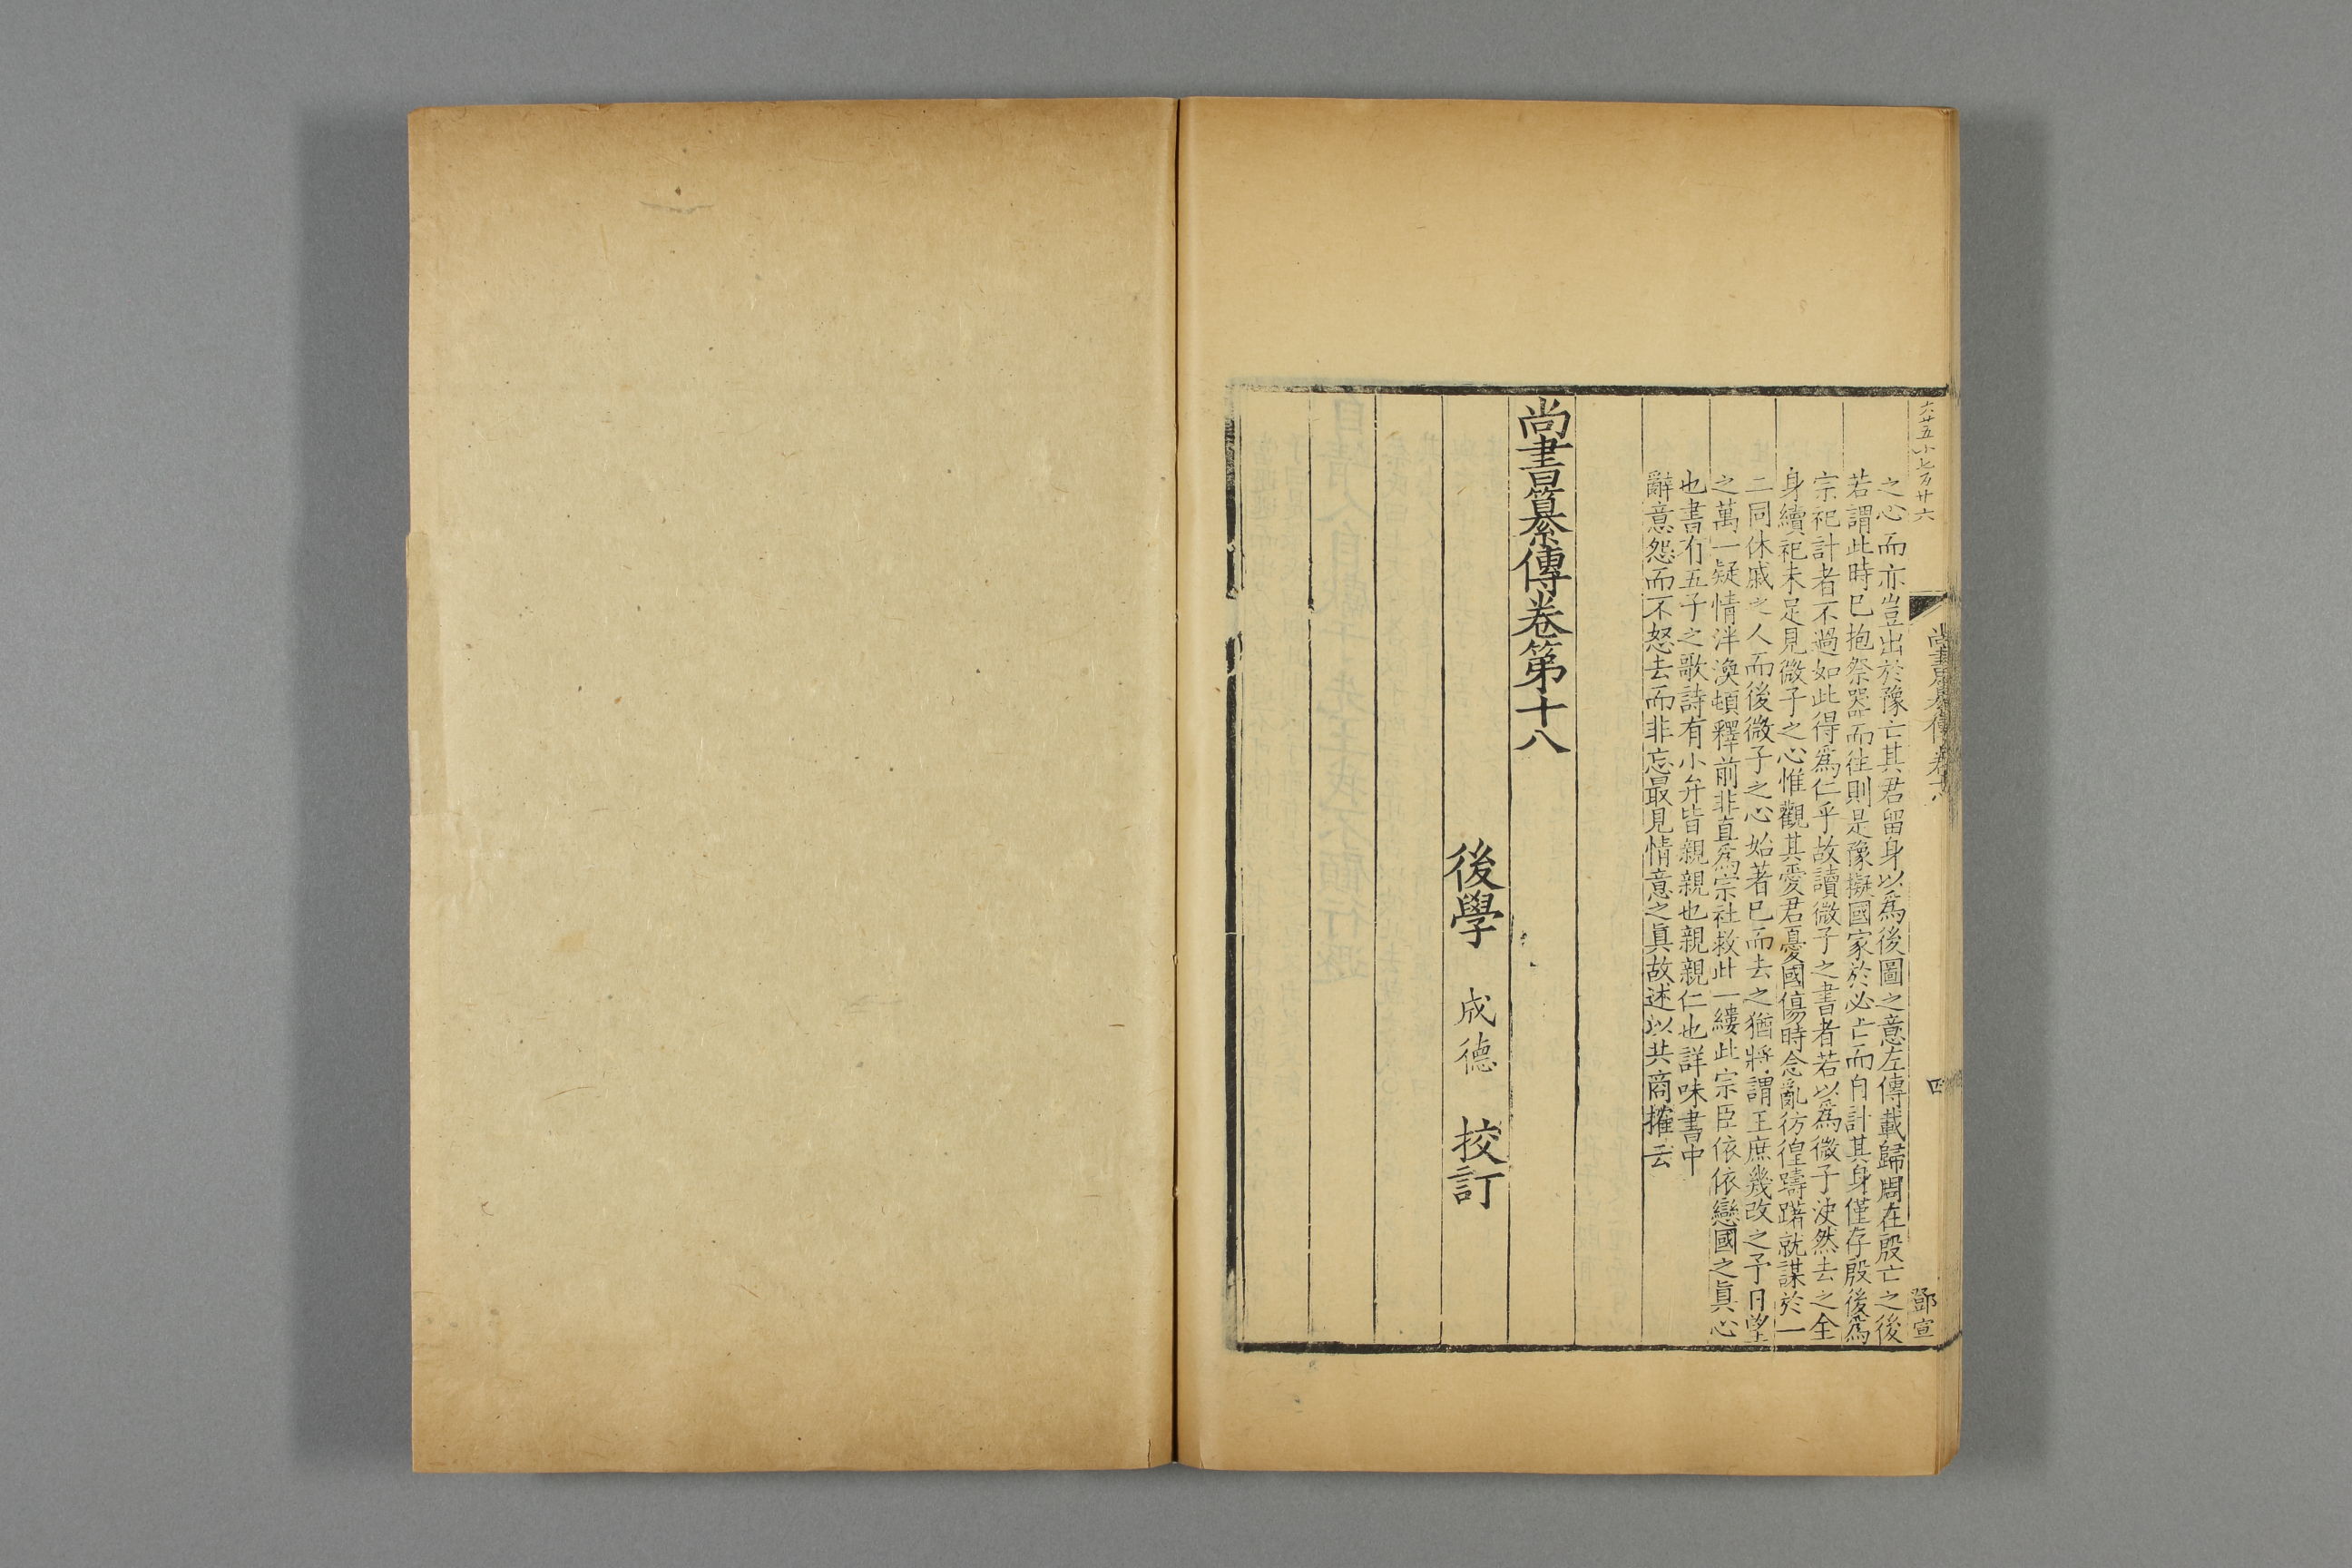 之心而亦豈出於豫亡其君留身以爲後圖之意左傳載歸周在殷亡之後
若謂此時已抱祭器而往則是豫擬國家於必亡而自計其身僅存殷後爲
宗祀計者不過如此得爲仁乎故讀微子之書者若以爲微子決然去之全
身續祀未足見微子之心惟觀其愛君憂國傷時念亂彷徨躊躇就謀於一
二同休戚之人而後微子之心始著已而去之猶將謂王庶幾改之予日望
之萬一疑情泮渙頓釋前非直爲宗社救此一縷此宗臣依依戀國之眞心
也書有五子之歌詩有小弁皆親親也親親仁也詳味書中
辭意怨而不怒去而非忘最見情意之眞故述以共商搉云
尚書纂傳卷第十八
後學 成德 校訂
四
鄧宣